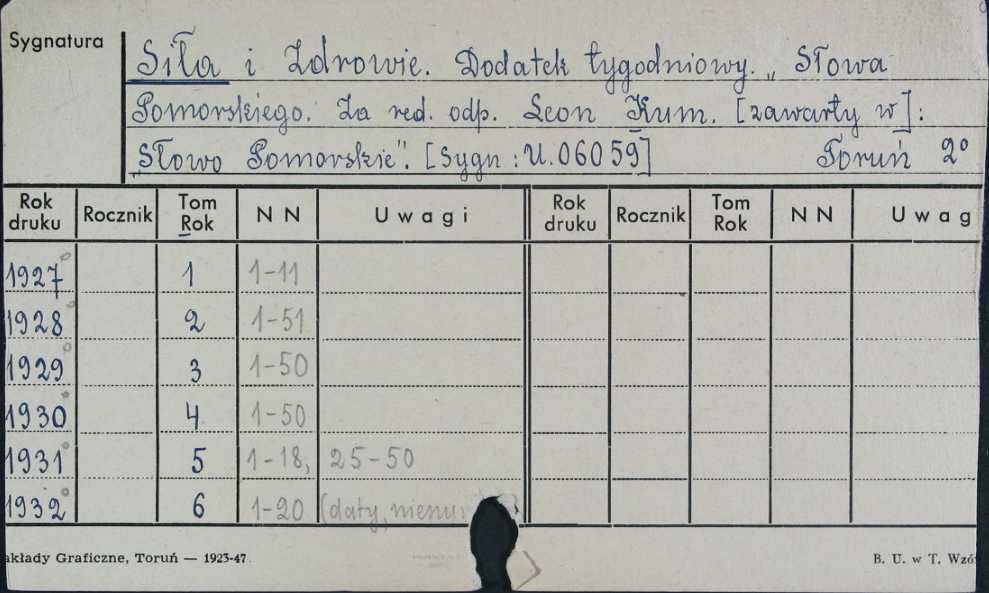 Sygnatura
Siła i Zdrowie. Dodatek tygodniowy. „Słowa
Pomorskiego. Za red. odp. Leon Kum. [zawarty w]:
Słowo Pomorskie". [Sygn: U. 06059] Toruń 2°
Rok druku Rocznik Tom Rok N N Uwagi Rok druku Rocznik Tom Rok N N Uwag
1927 1 1-11
1928 2 1-51
1929 3 1-50
1930 4 1-50
1931 5 1-18, 25-50
1932 6 1-20 (daty,
akłady Graficzne, Toruń — 1923-47 B. U. w T.